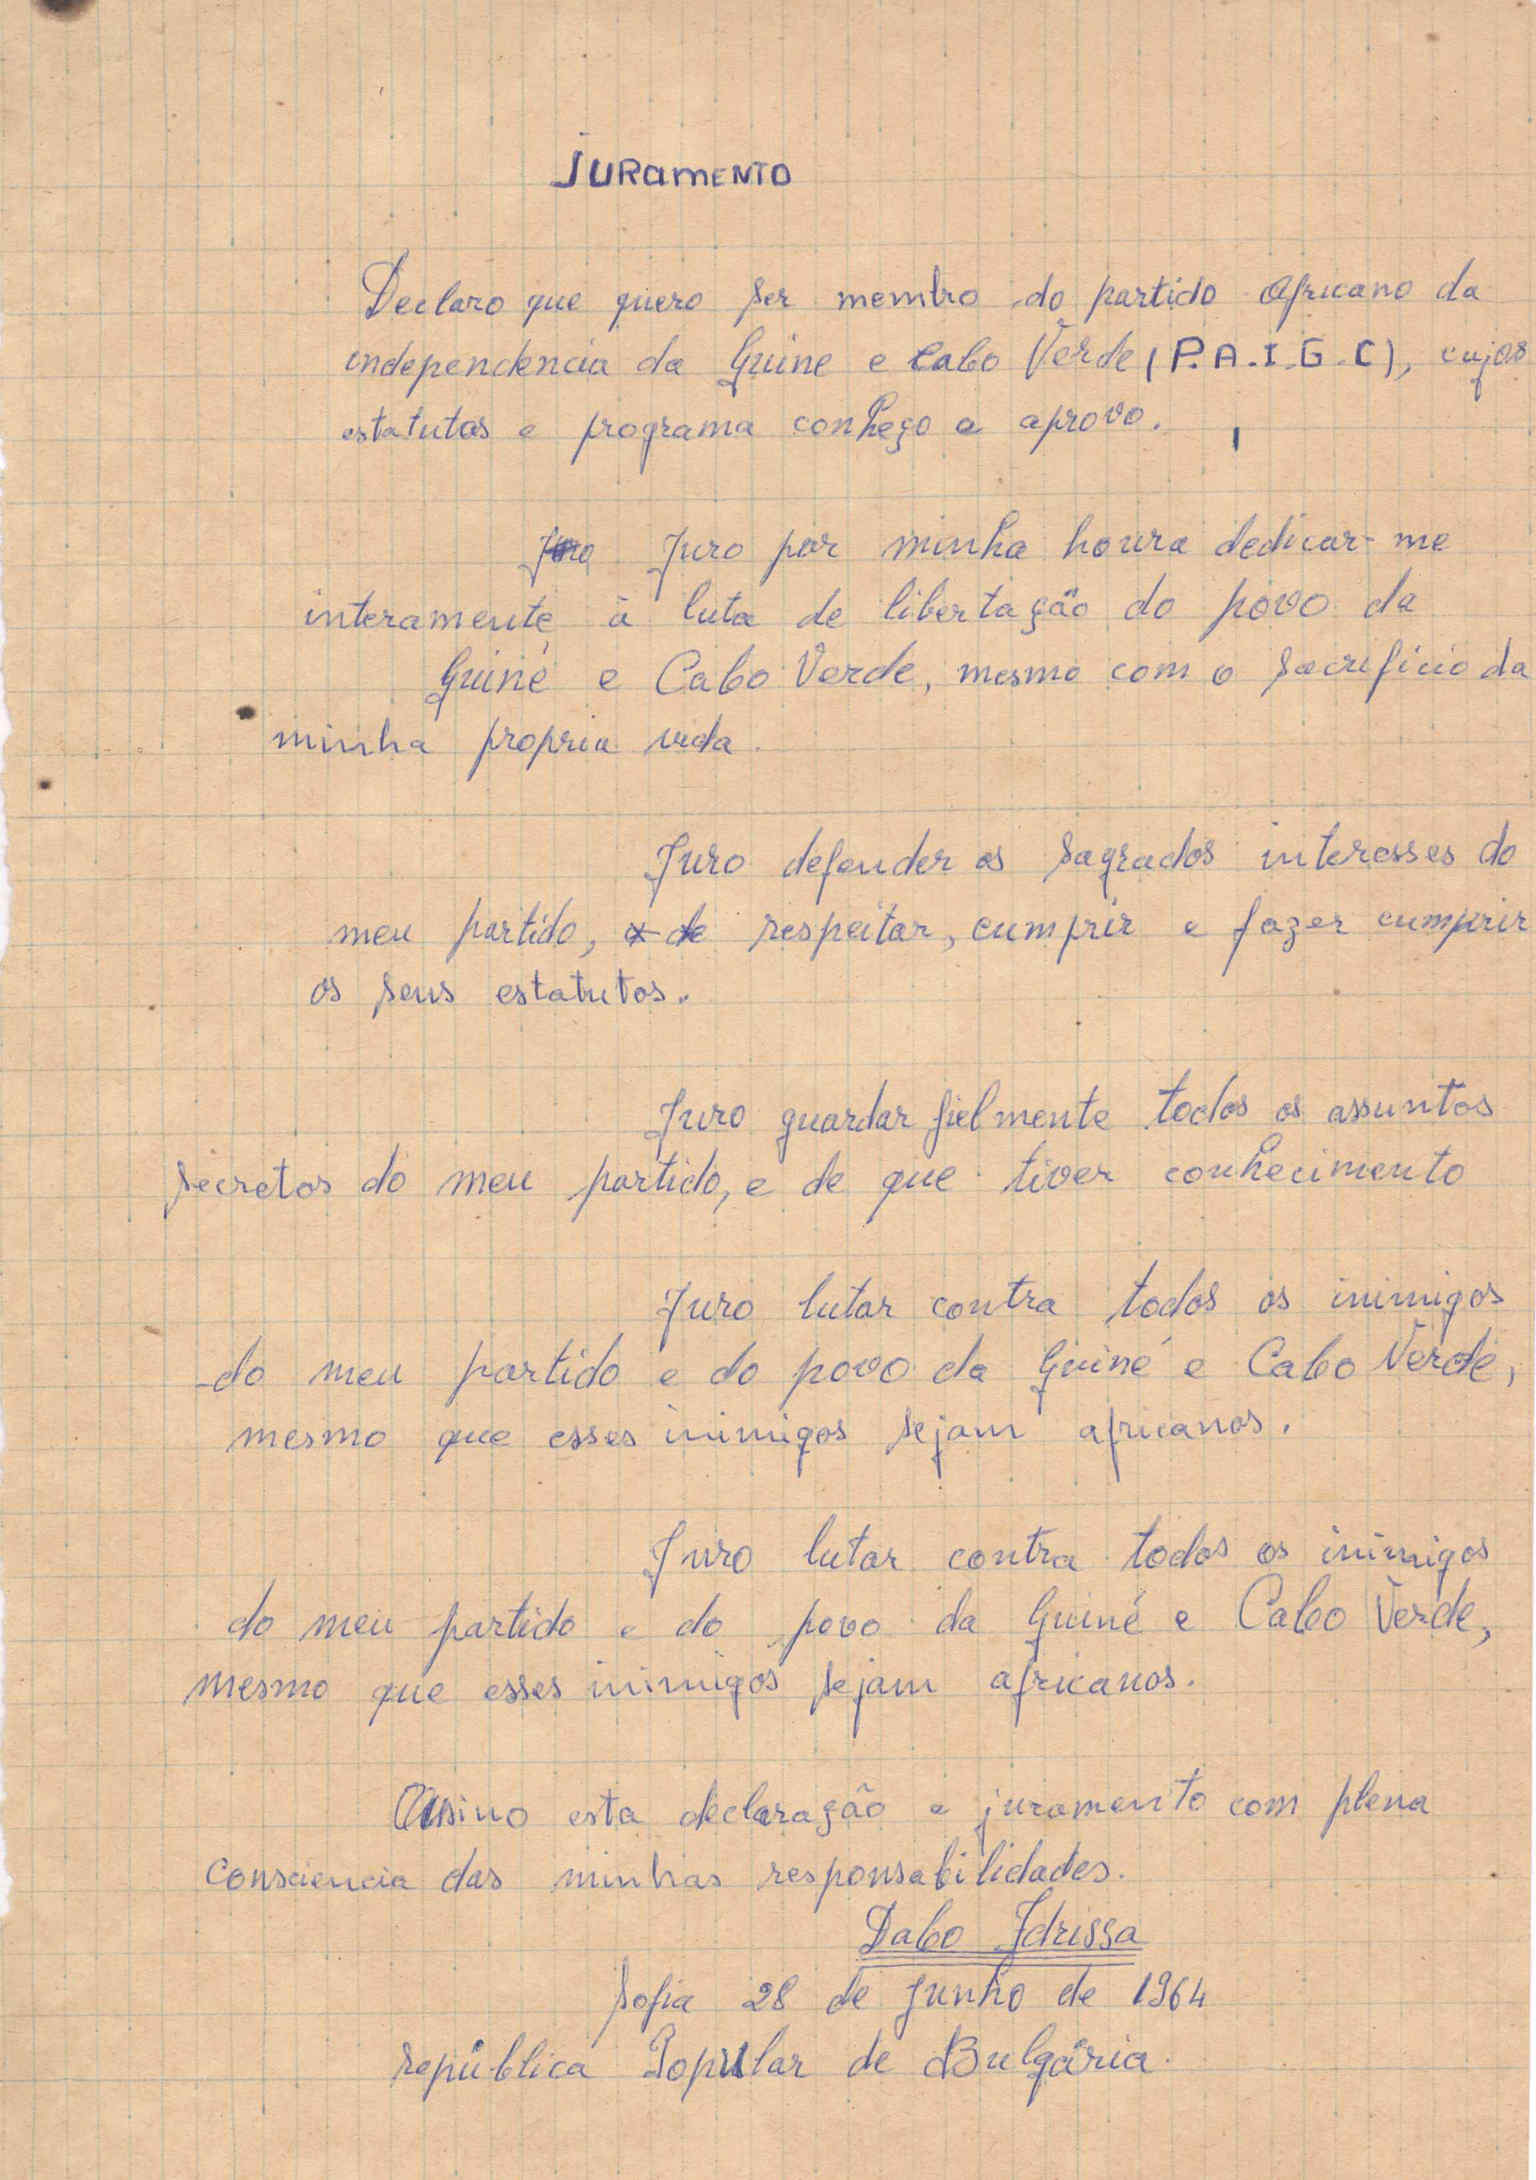 JURAMENTO
Declaro que quero ser membro do partido Africano da
independencia da Guine e Cabo Verde (P.A.I.G.C), cujos
estatutos e programa conheço e aprovo.
Juro Juro por minha honra dedicar-me
interamente à luta de libertação do povo da
Guiné e Cabo Verde, mesmo com o sacrificio da
minha propria vida.
Juro defender os sagrados interesses do
meu partido, e de respeitar, cumprir e fazer cumprir
os seus estatutos.
Juro guardar fielmente todos os assuntos
secretos do meu partido, e de que tiver conhecimento
Juro lutar contra todos os inimigos
do meu partido e do povo da Guiné e Cabo Verde,
mesmo que esses inimigos sejam africanos.
Juro lutar contra todos os inimigos
do meu partido e do povo da Guiné e Cabo Verde,
mesmo que esses inimigos sejam africanos.
Assino esta declaração e juramento com plena
Consciencia das minhas responsabilidades.
Dabo Idrissa
Sofia 28 de Junho de 1964
república Popular de Bulgária.